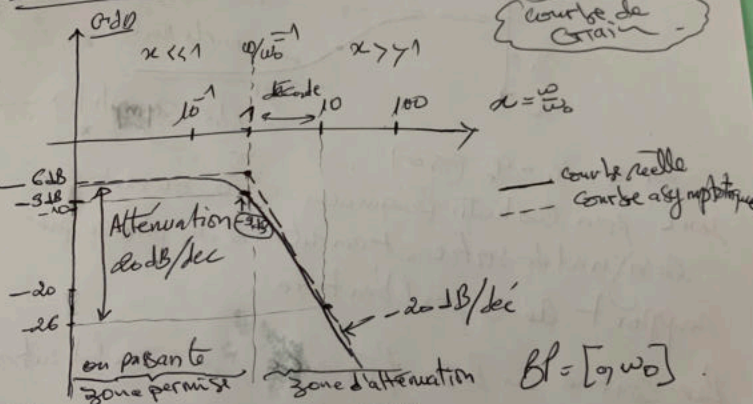 GdB
courbe de
Grain
x << 1
ω/ω₀=1
x >> 1
décade
10⁻¹
1
10
100
x = ω/ω₀
-6dB
-9dB
-10
courbe réelle
courbe asymptotique
Attenuation
20dB/dec
-9dB
-20
-26
-20dB/déc
ou passante
zone permise
zone d'attenuation
BP = [0, ω₀]